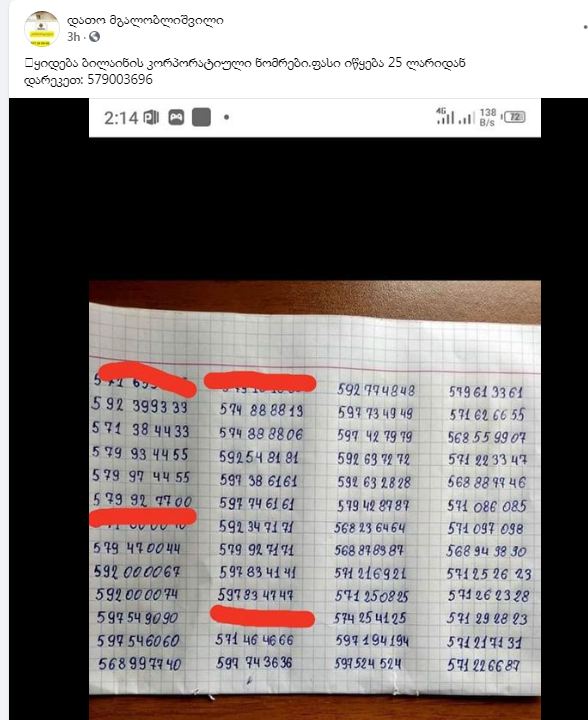 დათო მგალობლიშვილი
3h
ყიდება ბილაინის კორპორატიული ნომრები.ფასი იწყება 25 ლარიდან
დარეკეთ: 579003696
2:14
4G 138 B/s 72
592 774848 579 61 33 61
592 3993 39 574 88 88 13 597 73 49 49 571 62 66 55
571 38 44 33 574 88 88 06 597 42 79 79 568 55 99 07
579 93 44 55 592 54 81 81 592 63 72 72 571 22 33 47
579 97 44 55 597 38 6161 592 63 28 28 568 88 77 46
579 92 77 00 597 74 61 61 579 42 87 87 571 086 085
592 34 71 71 568 23 64 64 571 097 098
579 47 00 44 579 92 71 71 568 87 83 87 568 94 98 90
592 0000 67 597 83 41 41 571 216921 571 25 26 23
592 0000 74 597 83 47 47 571 250825 571 26 23 28
597 54 90 90 574 25 41 25 571 29 28 23
597 54 60 60 571 46 46 66 597 194 194 571 217 1 31
568 99 77 40 597 74 36 36 597 524 524 571 22 66 87